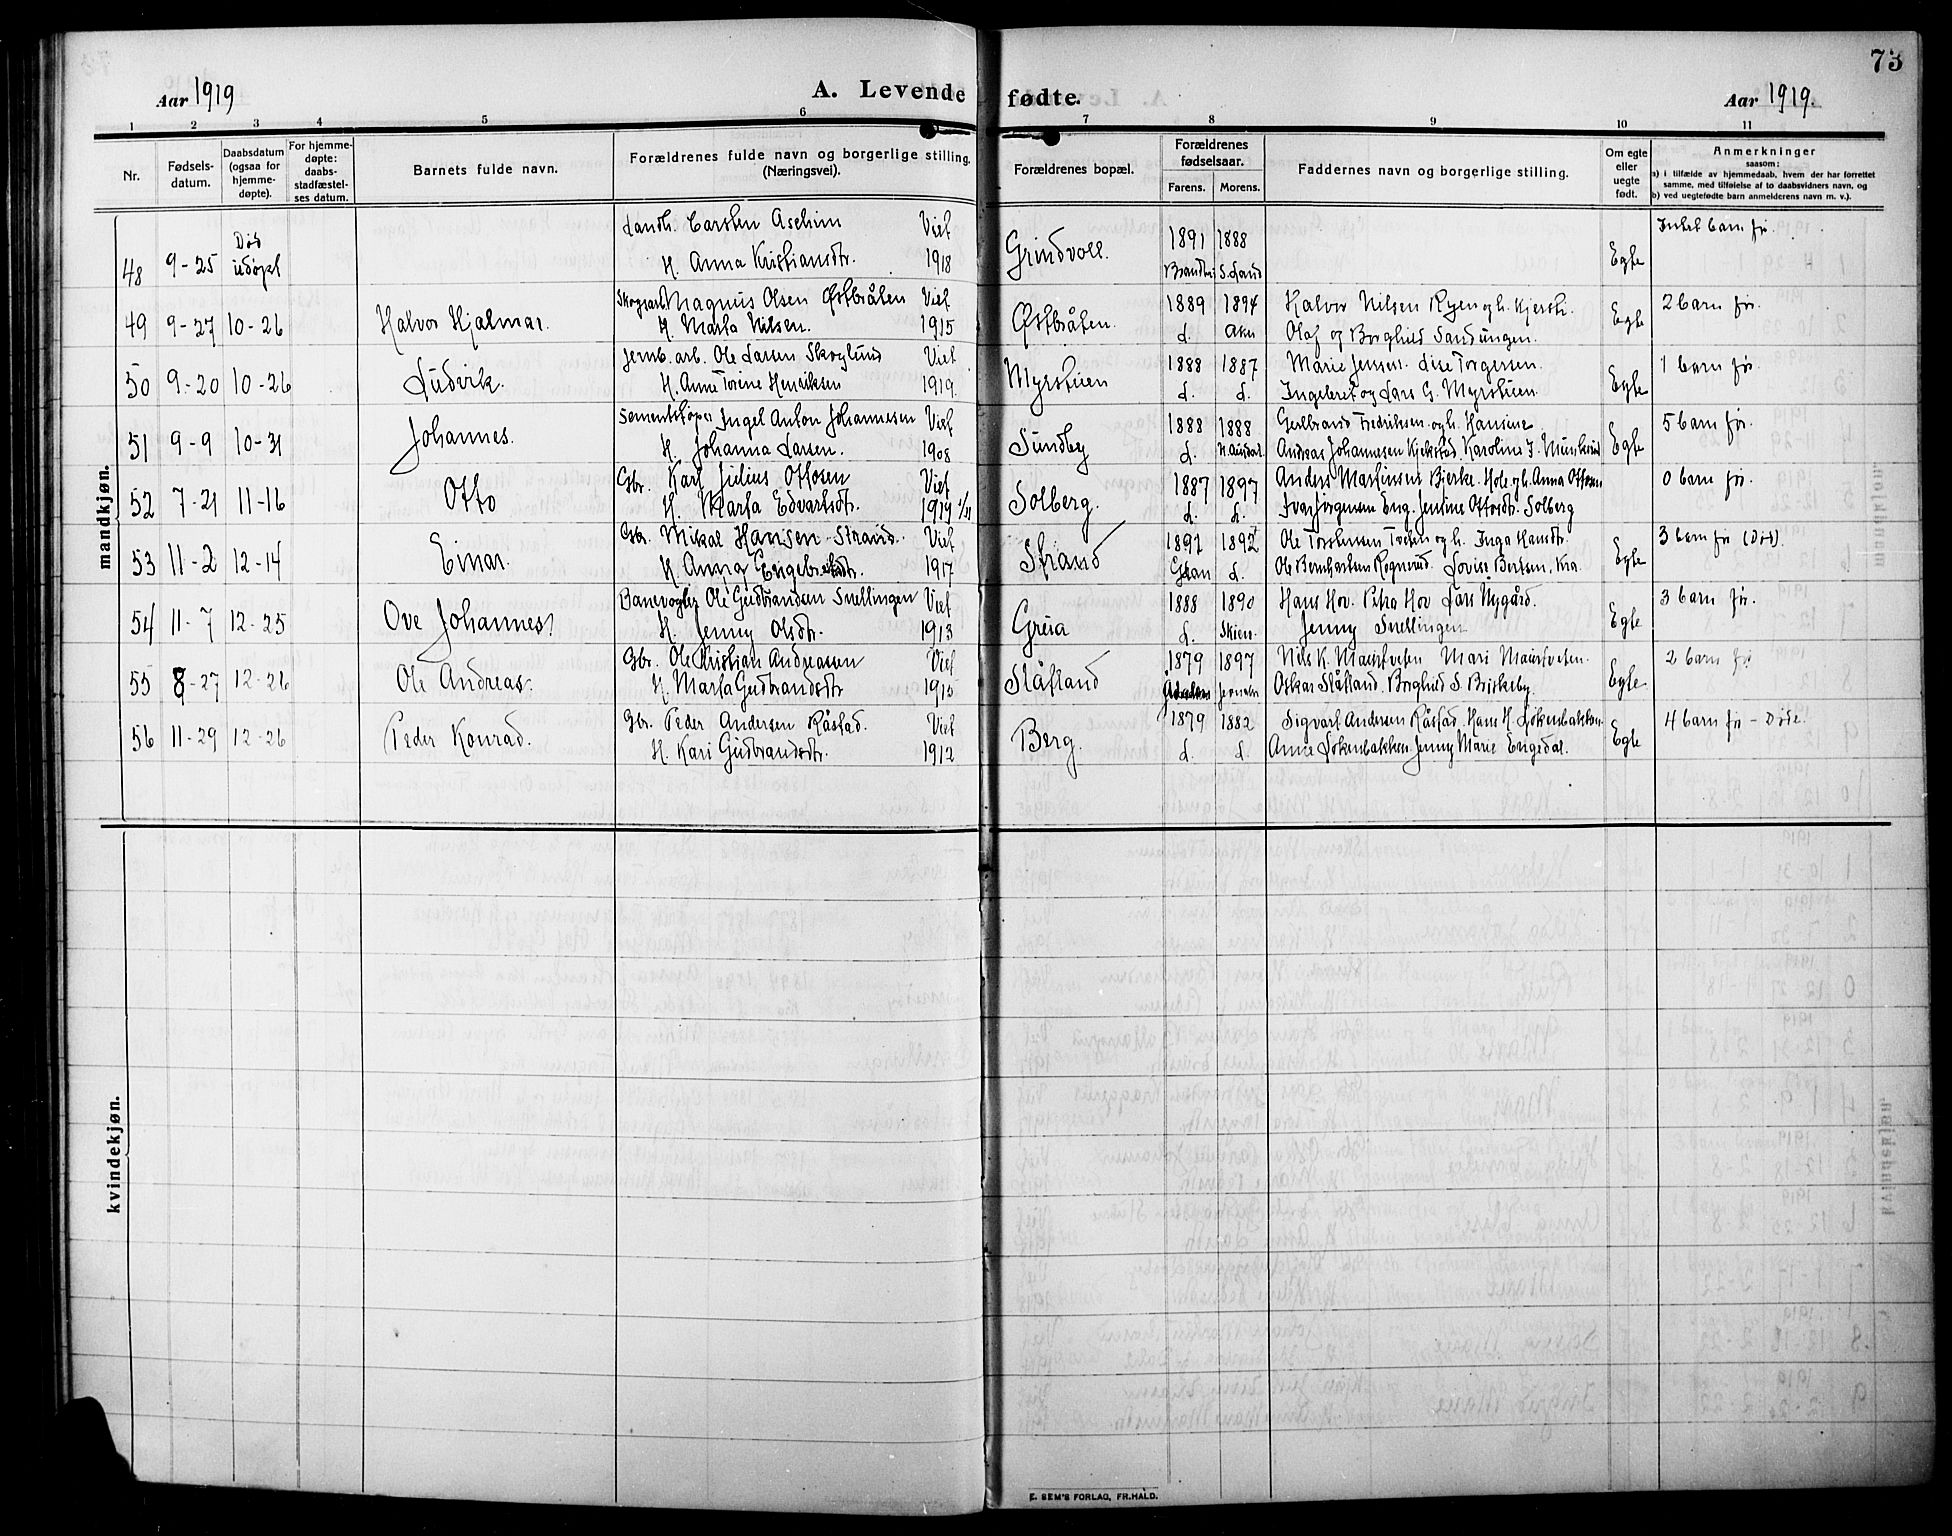 73
Aar 1919 A. Levende fødte. Aar 1919.
1 2 3 4 5 6 7 8 9 10 11
Nr.
Fødsels-
datum.
Daabsdatum
(ogsaa for
hjemme-
døpte).
For hjemme-
døpte:
daabs-
stadfæstel-
ses datum.
Barnets fulde navn.
Forældrenes fulde navn og borgerlige stilling.
(Næringsvei).
Forældrenes bopæl.
Forældrenes
fødselsaar.
Farens. Morens.
Faddernes navn og borgerlige stilling.
Om egte
eller
uegte
født.
Anmerkninger
saasom:
a) i tilfælde av hjemmedaab, hvem der har forrettet
samme, med tilføielse af to daabsvidners navn, og
b) ved uegtefødte barn anmelderens navn m. v.).
mandkjøn.
Landh. Carsten Aschim Viet 1891 1888 Intet barn før.
48 9-25 Død udøpt H. Anna Kristiansdtr. 1918 Grindvoll. S. Land Egte
Magnus Olsen Østbråten Viet 1889 1894 Halvor Nilsen Ryen og h. Kjersti. 2 barn før.
49 9-27 10-26 Halvor Hjalmar. H. Marta Nilsen. 1915 Østbråten. L. Aker Olaf og Borghild Sandungen. Egte
Jernb. arb. Ole Larsen Skoglund Viet 1888 1887 Marie Jensen. Lise Torgersen. 1 barn før.
50 9-20 10-26 Ludvik. H. Anne Torine Henriksen 1919. Myrstuen L. L. Ingebret og Lars G. Myrstuen. Egte
Sementstøper Ingel Anton Johannesen Viet 1888 1888 Gulbrand Fredriksen og h. Hansine 5 barn før.
51 9-9 10-31 Johannes. H. Johanna Larsen. 1908 Sundby L. Andreas Johannesen Kjekstad Karoline J. Egte
Gbr. Karl Julius Ottosen Viet 1887 1897 Anders Martinsens Bjerke. Hole og h. Anna Ottosen 0 barn før.
52 7-21 11-16 Otto H. Marta Edvartsdtr. 1919 Solberg. L. L. Ivar Jørgensen Eng. Jentine Ottosdtr. Solberg
Gbr. Mikal Hansen Strand. Viet 1892 1892 Ole Torstensen og h. Inga Hansdtr. 3 barn før (Død).
53 11-2 12-14 Einar. H. Anna Engebretsdtr. 1917 Strand Gran L. Ole Bernhartsen Rognerud. Lovise Bertsen, Kra. Egte
Banevogter Ole Gudbrandsen Snellingen Viet 1888 1890 Hans Hov. Petra Hov Lars Nygård. 3 barn før.
54 11-7 12-25 Ove Johannes. H. Jenny Olsdtr. 1913 Greia L. Skien. Jenny Snellingen Egte
Gbr. Ole Kristian Andreasen Viet 1879 1897 Nils K. Mari 2 barn før
55 8-27 12-26 Ole Andreas. H. Marta Gudbrandsdtr 1915 Slåtland Jevnaker Oskar Slåtland. Borghild S Briskeby. Egte
Gbr. Peder Andersen Råstad. Viet 1879 1882 Sigvart Andersen Råstad. Hans H. Løkenbakken. 4 barn før - Døde.
56 11-29 12-26 Peder Konrad. H. Kari Gudbrandsdtr. 1912 Berg. L. L. Anne Løkenbakken. Jenny Marie Engedal. Egte
kvindekjøn.
E. SEM'S FORLAG, FR.HALD.